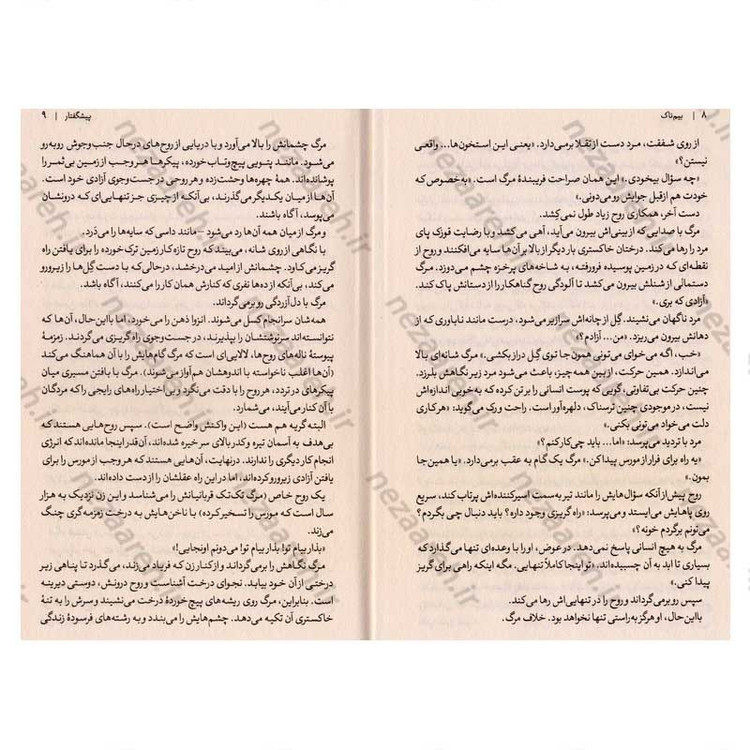 ۸ | بیم‌ناک
از روی شفقت، مرد دست از تقلا برمی‌دارد. «یعنی این استخون‌ها... واقعی
نیستن؟»
«چه سؤال بیخودی.» این همان صراحت فریبندهٔ مرگ است. «به‌خصوص که
خودت هم از قبل جوابش رو می‌دونی.»
دست آخر، همکاری روح زیاد طول نمی‌کشد.
مرگ با صدایی که از بینی‌اش بیرون می‌آید، آهی می‌کشد و با رضایت قوزک پای
مرد را رها می‌کند. درختان خاکستری بار دیگر از بالا بر آن‌ها سایه می‌افکنند و روح از
نقطه‌ای که در زمین پوسیده فرورفته، به شاخه‌های پرخزه چشم می‌دوزد. مرگ
دستمالی از شنلش بیرون می‌کشد تا آلودگی روح گناهکار را از دستانش پاک کند.
«آزادی که بری.»
مرد ناگهان می‌نشیند. گِل از چانه‌اش سرازیر می‌شود، درست مانند ناباوری که از
دهانش بیرون می‌ریزد. «من... آزادم؟»
«خب، اگه می‌خوای می‌تونی همون جا توی گِل دراز بکشی.» مرگ شانه‌ای بالا
می‌اندازد. همین حرکت، از بین همه چیز، باعث می‌شود مرد زیر نگاهش بلرزد.
چنین حرکت بی‌تفاوتی، گویی که پوست انسانی را بر تن کرده که به‌خوبی اندازه‌اش
نیست، در موجودی چنین ترسناک، دلهره‌آور است. راحت ورک می‌گوید: «هر کاری
دلت می‌خواد می‌تونی بکنی.»
مرد با تردید می‌پرسد: «اما... باید چی‌کار کنم؟»
«یه راه برای فرار از مورس پیدا کن.» مرگ یک گام به عقب برمی‌دارد. «یا همین‌جا
بمون.»
روح پیش از آنکه سؤال‌هایش را مانند تیر به‌سمت اسیرکننده‌اش پرتاب کند، سریع
روی پاهایش می‌ایستد و می‌پرسد: «راه گریزی وجود داره؟ باید دنبال چی بگردم؟
می‌تونم برگردم خونه؟»
مرگ به هیچ انسانی پاسخ نمی‌دهد. در عوض، او را با وعده‌ای تنها می‌گذارد که
بسیاری تا ابد به آن چسبیده‌اند. «تو اینجا کاملاً تنهایی. مگه اینکه راهی برای گریز
پیدا کنی.»
سپس رو برمی‌گرداند و روح را در تنهایی‌اش رها می‌کند.
بااین‌حال، او هرگز به‌راستی تنها نخواهد بود. خلاف مرگ.
پیشگفتار | ۹
مرگ چشمانش را بالا می‌آورد و با دریایی از روح‌های درحال جنب‌وجوش روبه‌رو
می‌شود. مانند پتویی پیچ‌وتاب‌خورده، پیکرها هر وجب از زمین بی‌ثمر را
پوشانده‌اند. همهٔ چهره‌ها وحشت‌زده و هر روحی در جست‌وجوی آزادی خود است.
آن‌ها از میان یکدیگر می‌گذرند، بی‌آنکه از چیزی جز تنهایی‌ای که درونشان
می‌پوسد، آگاه باشند.
و مرگ از میان همه آن‌ها رد می‌شود – مانند داسی که سایه‌ها را می‌دَرد.
با نگاهی از روی شانه، می‌بیند که روح تازه کار زمین ترک‌خورده را برای یافتن راه
گریز می‌کاود. چشمانش از امید می‌درخشد، درحالی‌که با دست گِل‌ها را زیرورو
می‌کند، بی‌آنکه از ده‌ها نفری که کنارش همان کار را می‌کنند، آگاه باشد.
مرگ با دل‌آزردگی رو برمی‌گرداند.
همه‌شان سرانجام کسل می‌شوند. انزوا ذهن را می‌خورد، اما بااین‌حال، آن‌ها که
نتوانسته‌اند سرنوشتشان را بپذیرند، در جست‌وجوی راه گریزی می‌گردند. زمزمهٔ
پیوستهٔ ناله‌های روح‌ها، لالایی‌ای است که مرگ گام‌هایش را با آن هماهنگ می‌کند
(آن‌ها اغلب ناخواسته با اندوهشان هم‌آواز می‌شوند). مرگ با یافتن مسیری میان
پیکرهای در تردد، هر روح را با دقت می‌نگرد و بی‌اختیار راه‌های رایجی را که مردگان
با آن کنار می‌آیند، می‌شمارد.
البته گریه هم هست (این واکنش واضح است). سپس روح‌هایی هستند که
بی‌هدف به آسمان تیره و کدر بالای سر خیره شده‌اند، آن‌قدر اینجا مانده‌اند که انرژی
انجام کار دیگری را ندارند. درنهایت، آن‌هایی هستند که هر وجب از مورس را برای
یافتن آزادی زیرورو کرده‌اند، اما در این راه عقلشان را از دست داده‌اند.
یک روح خاص (مرگ تک‌تک قربانیانش را می‌شناسد و این زن نزدیک به هزار
سال است که مورس را تسخیر کرده) با ناخن‌هایش به درخت زمزمه‌گری چنگ
می‌زند.
«بذار بیام تو! بذار بیام تو! می‌دونم اونجایی!»
مرگ نگاهش را برمی‌گرداند و از کنار زن که فریاد می‌زند، می‌گذرد تا پناهی زیر
درختی از آن خود بیابد. نجوای درخت آشناست و روح درونش، دوستی دیرینه
است. بنابراین، مرگ روی ریشه‌های پیچ‌خوردهٔ درخت می‌نشیند و سرش را به تنهٔ
خاکستری آن تکیه می‌دهد. چشم‌هایش را می‌بندد و به رشته‌های فرسودهٔ زندگی
nezaareh.ir